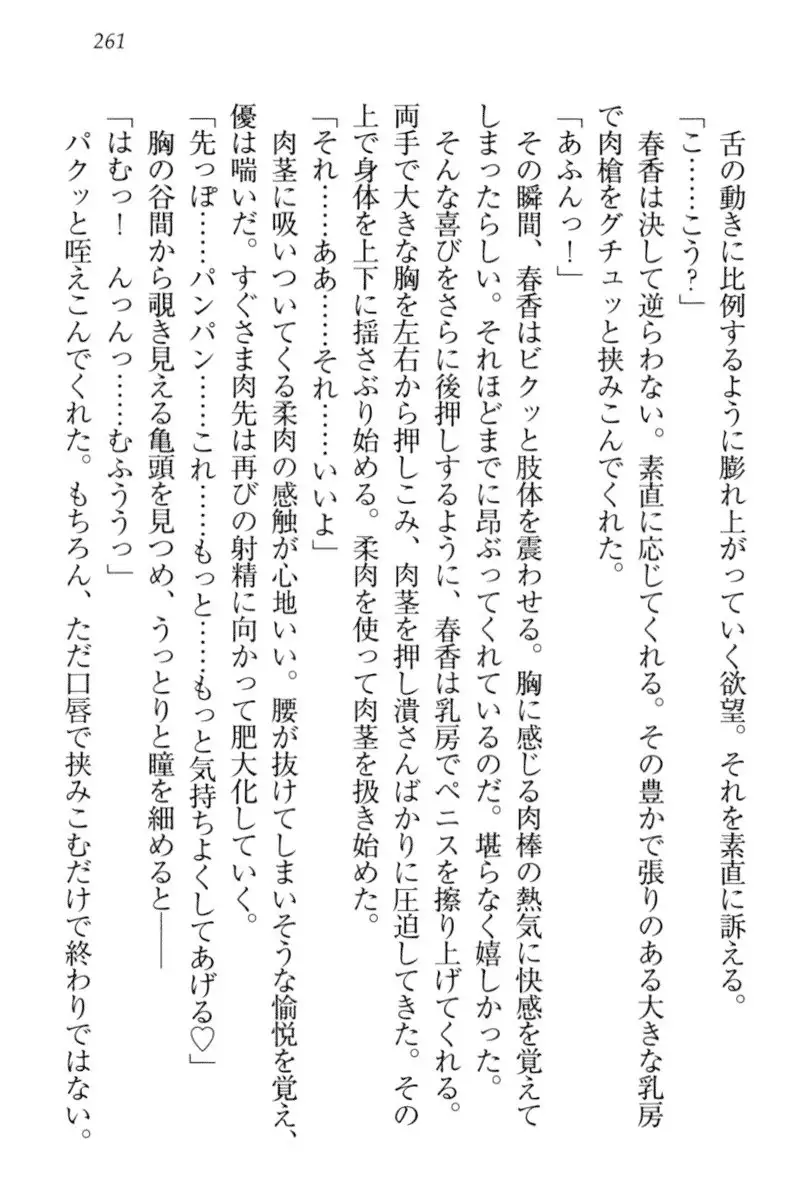 261
舌の動きに比例するように膨れ上がっていく欲望。それを素直に訴える。
「こ……こう?」
春香は決して逆らわない。素直に応じてくれる。その豊かで張りのある大きな乳房
で肉槍をグチュッと挟みこんでくれた。
「あふんっ!」
その瞬間、春香はビクッと肢体を震わせる。胸に感じる肉棒の熱気に快感を覚えて
しまったらしい。それほどまでに昂ぶってくれているのだ。堪らなく嬉しかった。
そんな喜びをさらに後押しするように、春香は乳房でペニスを擦り上げてくれる。
両手で大きな胸を左右から押しこみ、肉茎を押し潰さんばかりに圧迫してきた。その
上で身体を上下に揺さぶり始める。柔肉を使って肉茎を扱き始めた。
「それ……ああ……それ……いいよ」
肉茎に吸いついてくる柔肉の感触が心地いい。腰が抜けてしまいそうな愉悦を覚え、
優は喘いだ。すぐさま肉先は再びの射精に向かって肥大化していく。
「先っぽ……パンパン……これ……もっと……もっと気持ちよくしてあげる♡」
胸の谷間から覗き見える亀頭を見つめ、うっとりと瞳を細めると――
「はむっ! んっんっ……むふううっ」
パクッと咥えこんでくれた。もちろん、ただ口唇で挟みこむだけで終わりではない。